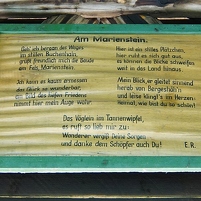 Am Marienstein.
Geh' ich bergan des Weges
im stillen Buchenhain,
grüßt freundlich mich die Baude
am Fels, Marienstein.
Ich kann es kaum ermessen
das Glück so wunderbar,
ein Bild des tiefen Friedens
nimmt hier mein Auge wahr
Hier ist ein stilles Plätzchen,
hier ruht es sich gut aus,
es können die Blicke schweifen
weit in das Land hinaus.
Mein Blick, er gleitet sinnend
herab von Bergeshöh'n
und leise klingt's im Herzen:
Heimat, wie bist du so schön!
Das Vöglein im Tannenwipfel,
es ruft so lieb mir zu:
Wanderer vergiß Deine Sorgen
und danke dem Schöpfer auch Du!
E.R.